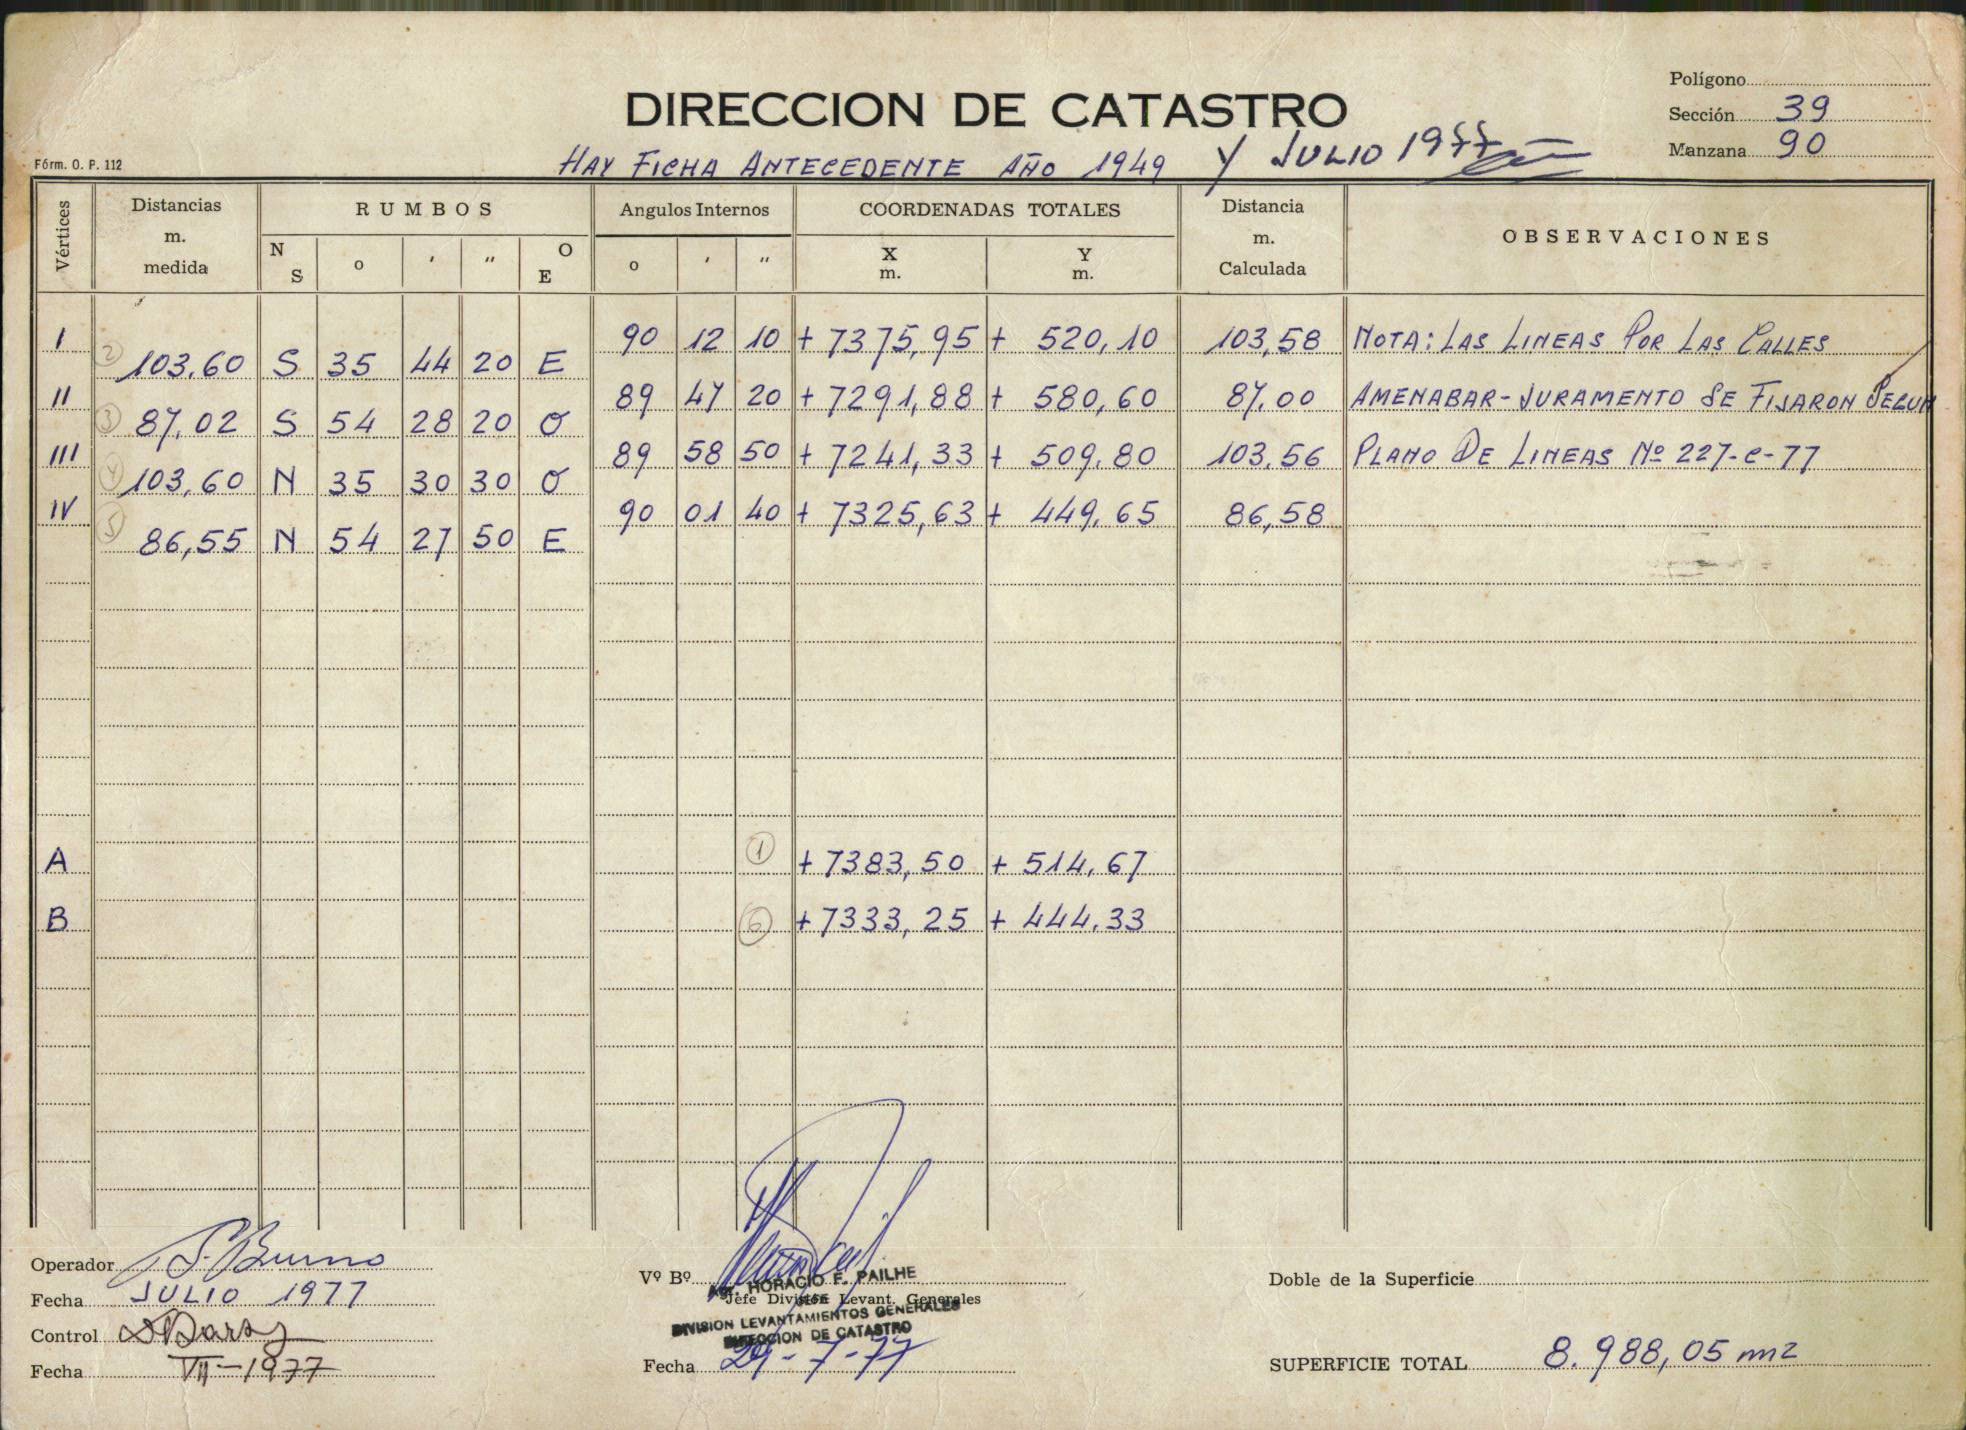 Polígono
DIRECCION DE CATASTRO
Sección 39
Manzana 90
Fórm. O. P. 112
HAY FICHA ANTECEDENTE AÑO 1949 Y JULIO 1977
Vértices Distancias m. medida RUMBOS Angulos Internos COORDENADAS TOTALES Distancia m. Calculada OBSERVACIONES
N S o ' " O E o ' " X m. Y m.
I 90 12 10 + 7375,95 + 520,10 103,58 NOTA: LAS LINEAS POR LAS CALLES
2 103,60 S 35 44 20 E
II 89 47 20 + 7291,88 + 580,60 87,00 AMENABAR-JURAMENTO SE FIJARON SEGUN
3 87,02 S 54 28 20 O
III 89 58 50 + 7241,33 + 509,80 103,56 PLANO DE LINEAS Nº 227-C-77
4 103,60 N 35 30 30 O
IV 90 01 40 + 7325,63 + 449,65 86,58
5 86,55 N 54 27 50 E
A 1 + 7383,50 + 514,67
B 6 + 7333,25 + 444,33
Operador S. Bruno
Fecha JULIO 1977
Control
Fecha VII-1977
Vº Bº
Agr. HORACIO F. PAILHE
Jefe División Levant. Generales
JEFE
DIVISION LEVANTAMIENTOS GENERALES
DIRECCION DE CATASTRO
Fecha 29-7-77
Doble de la Superficie
SUPERFICIE TOTAL 8.988,05 m2